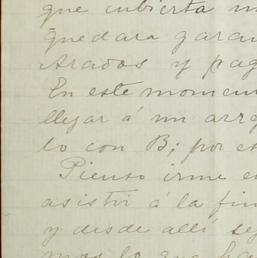 que cubierta
quedara
Arados y pag
En este momen
llegar á un arre
lo con B; por es
Pienso irme e
asistir á la fin
y desde allí se
mas lo que ha